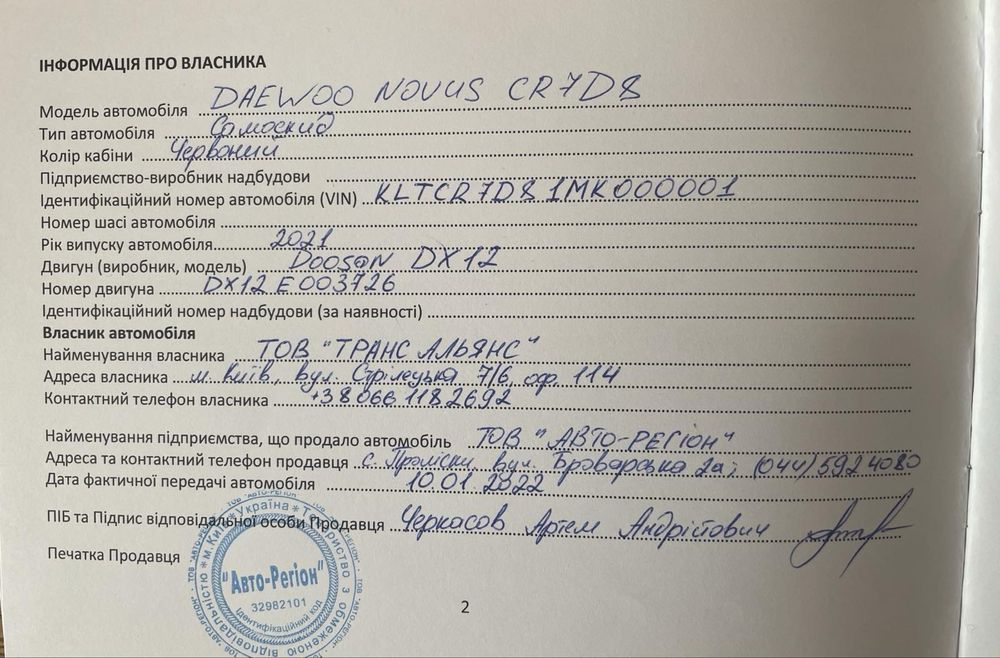 ІНФОРМАЦІЯ ПРО ВЛАСНИКА
Модель автомобіля DAEWOO NOVUS CR7D8
Тип автомобіля Самоскид
Колір кабіни Червоний
Підприємство-виробник надбудови
Ідентифікаційний номер автомобіля (VIN) KLTCR7D81MK000001
Номер шасі автомобіля
Рік випуску автомобіля 2021
Двигун (виробник, модель) DOOSAN DX12
Номер двигуна DX12E003726
Ідентифікаційний номер надбудови (за наявності)
Власник автомобіля
Найменування власника ТОВ "ТРАНС АЛЬЯНС"
Адреса власника м. Київ, вул. Стрілецька 7/6, оф. 114
Контактний телефон власника +38 066 118 2692
Найменування підприємства, що продало автомобіль ТОВ "АВТО-РЕГІОН"
Адреса та контактний телефон продавця с. Проліски вул. Броварська 2а; (044) 592 4080
Дата фактичної передачі автомобіля 10.01.2022
ПІБ та Підпис відповідальної особи Продавця Черкасов Артем Андрійович
Печатка Продавця
Україна * Товариство з обмеженою відповідальністю * м.Київ *
"Авто-Регіон"
32982101
Ідентифікаційний код
2